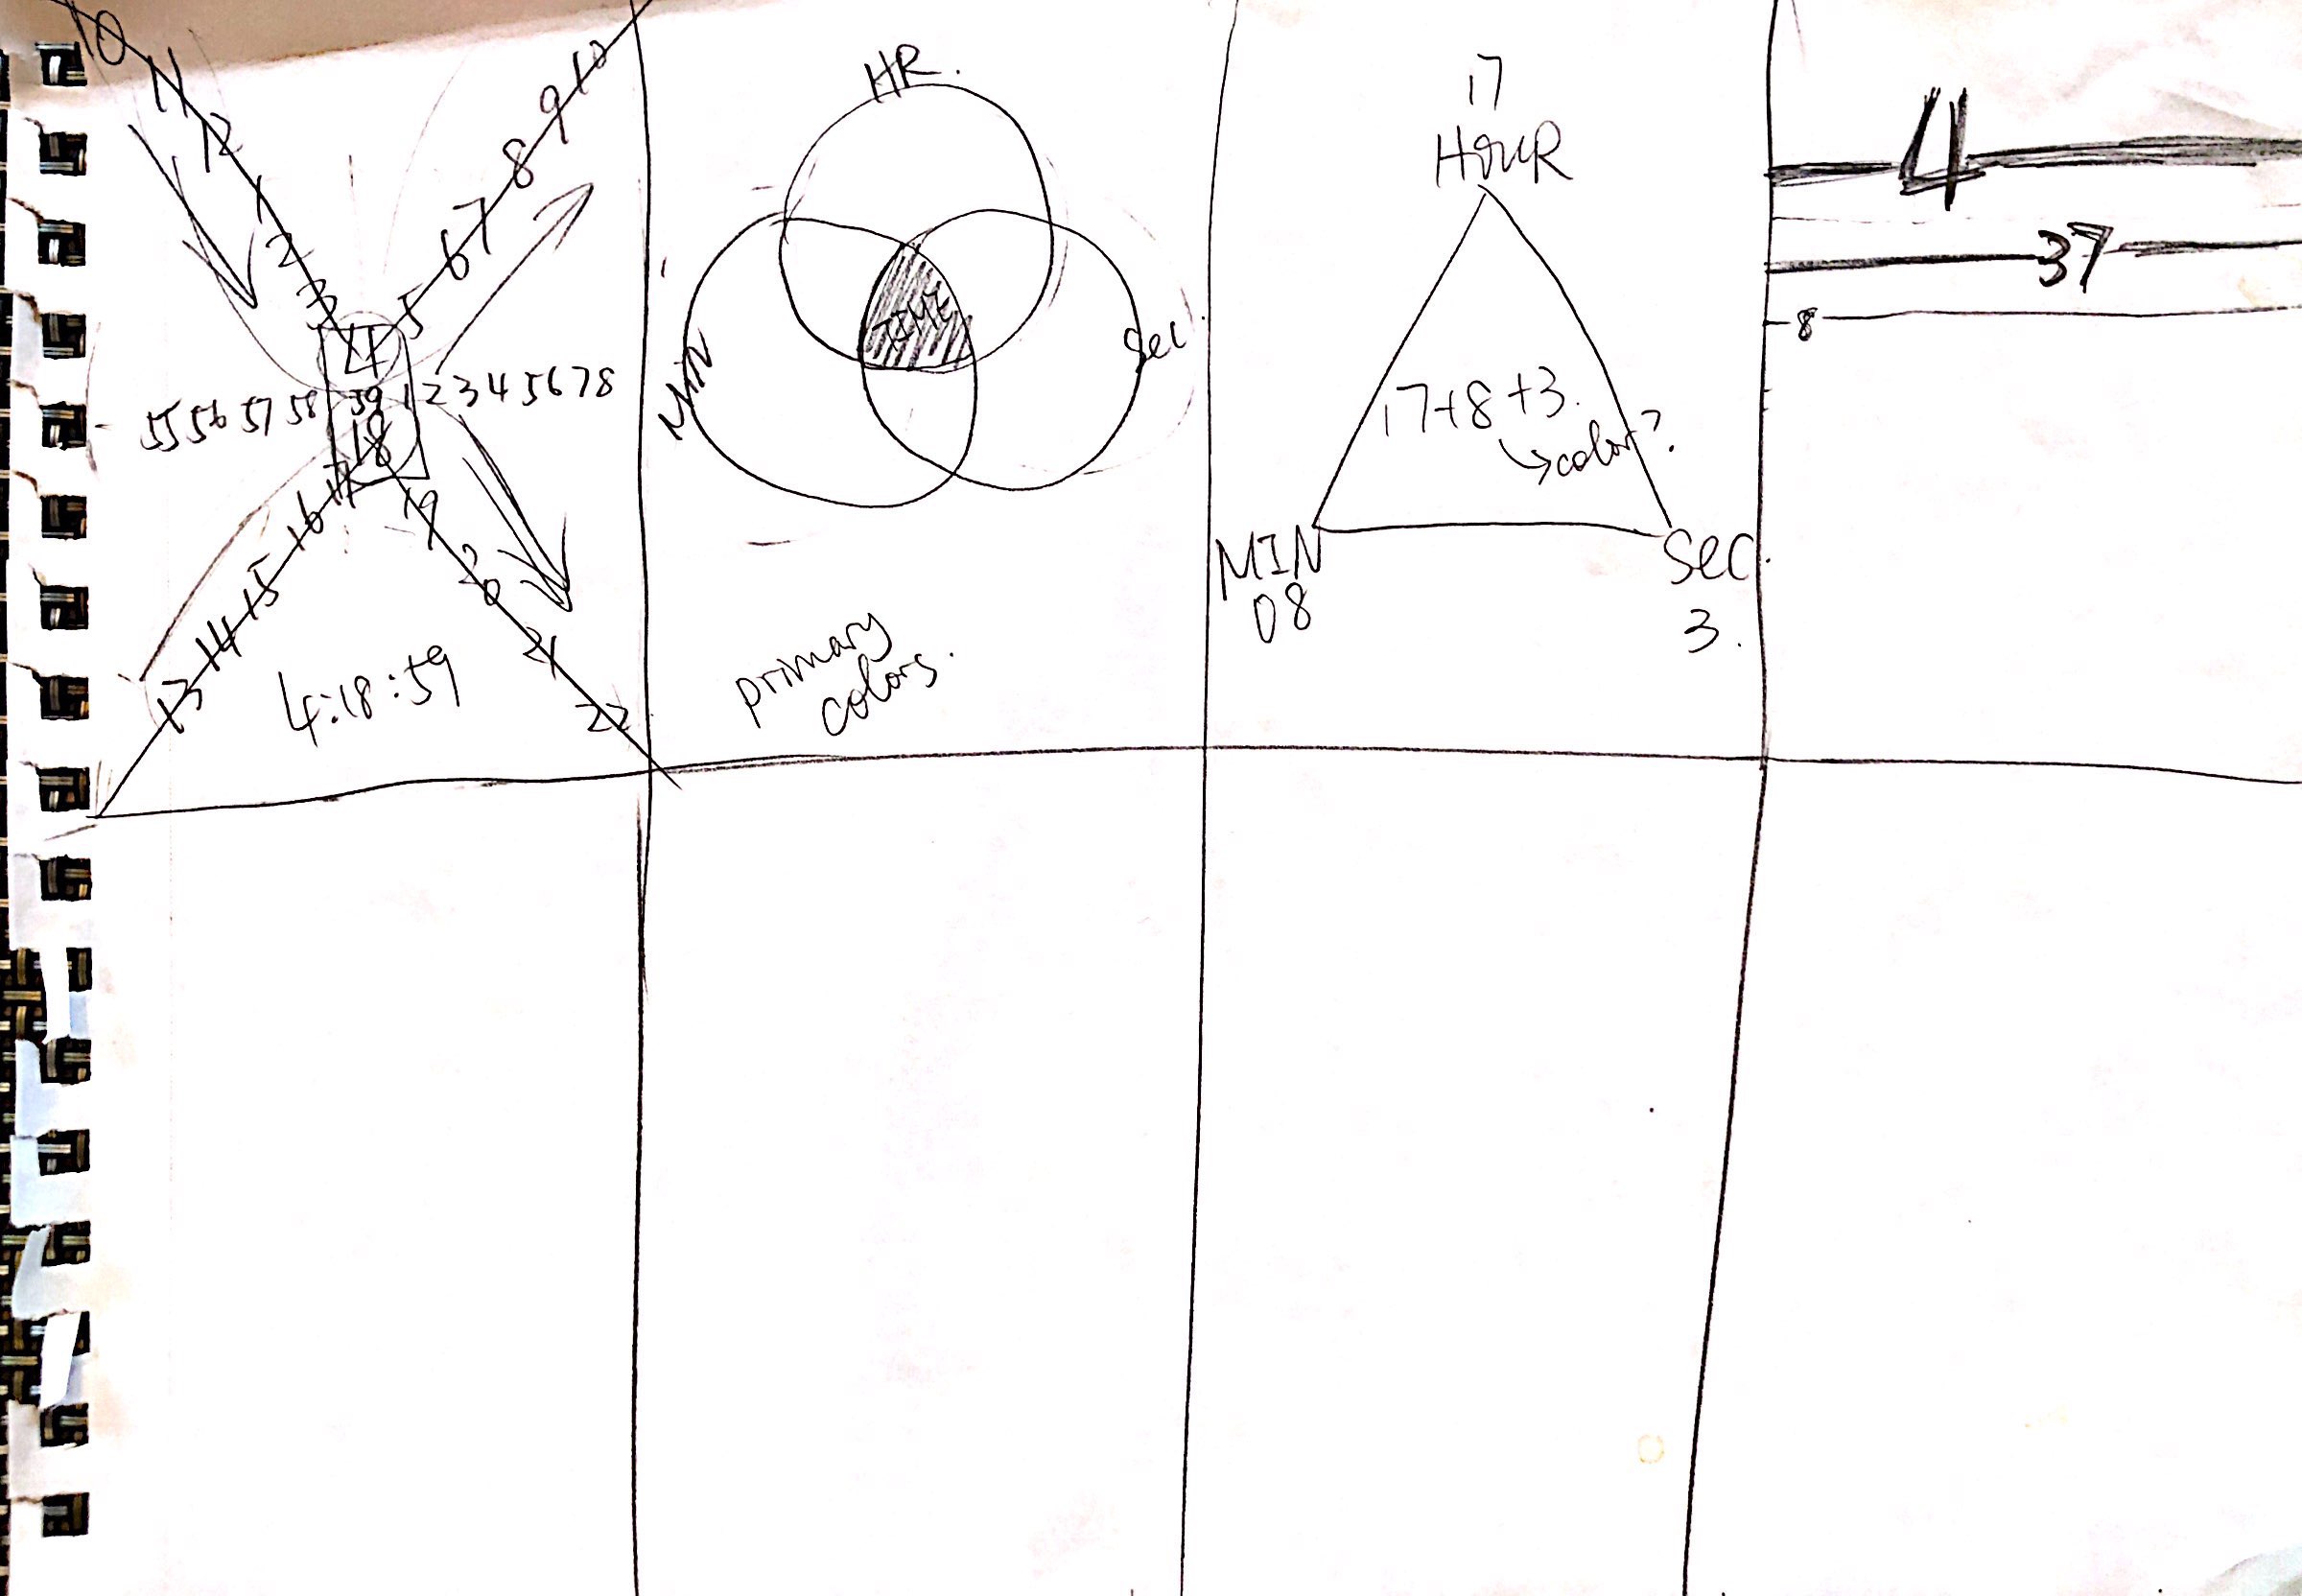 10 11 12 1 2 3 4 5 6 7 8 9 10
55 56 57 58 59 1 2 3 4 5 6 7 8
13 14 15 16 17 18 19 20 21 22
4:18:59
HR.
MIN
Sec.
TIME
primary
colors.
17
HOUR
17+8+3.
→color?
MIN
08
Sec.
3.
4
37
8